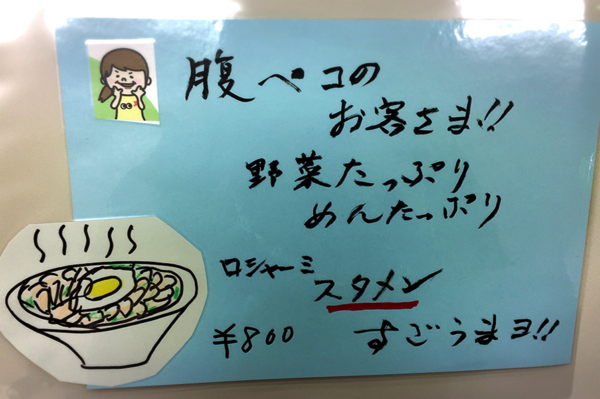 腹ペコの
お客さま!!
野菜たっぷり
めんたっぷり
ロジャーミ
スタメン
¥800
すごうまヨ!!